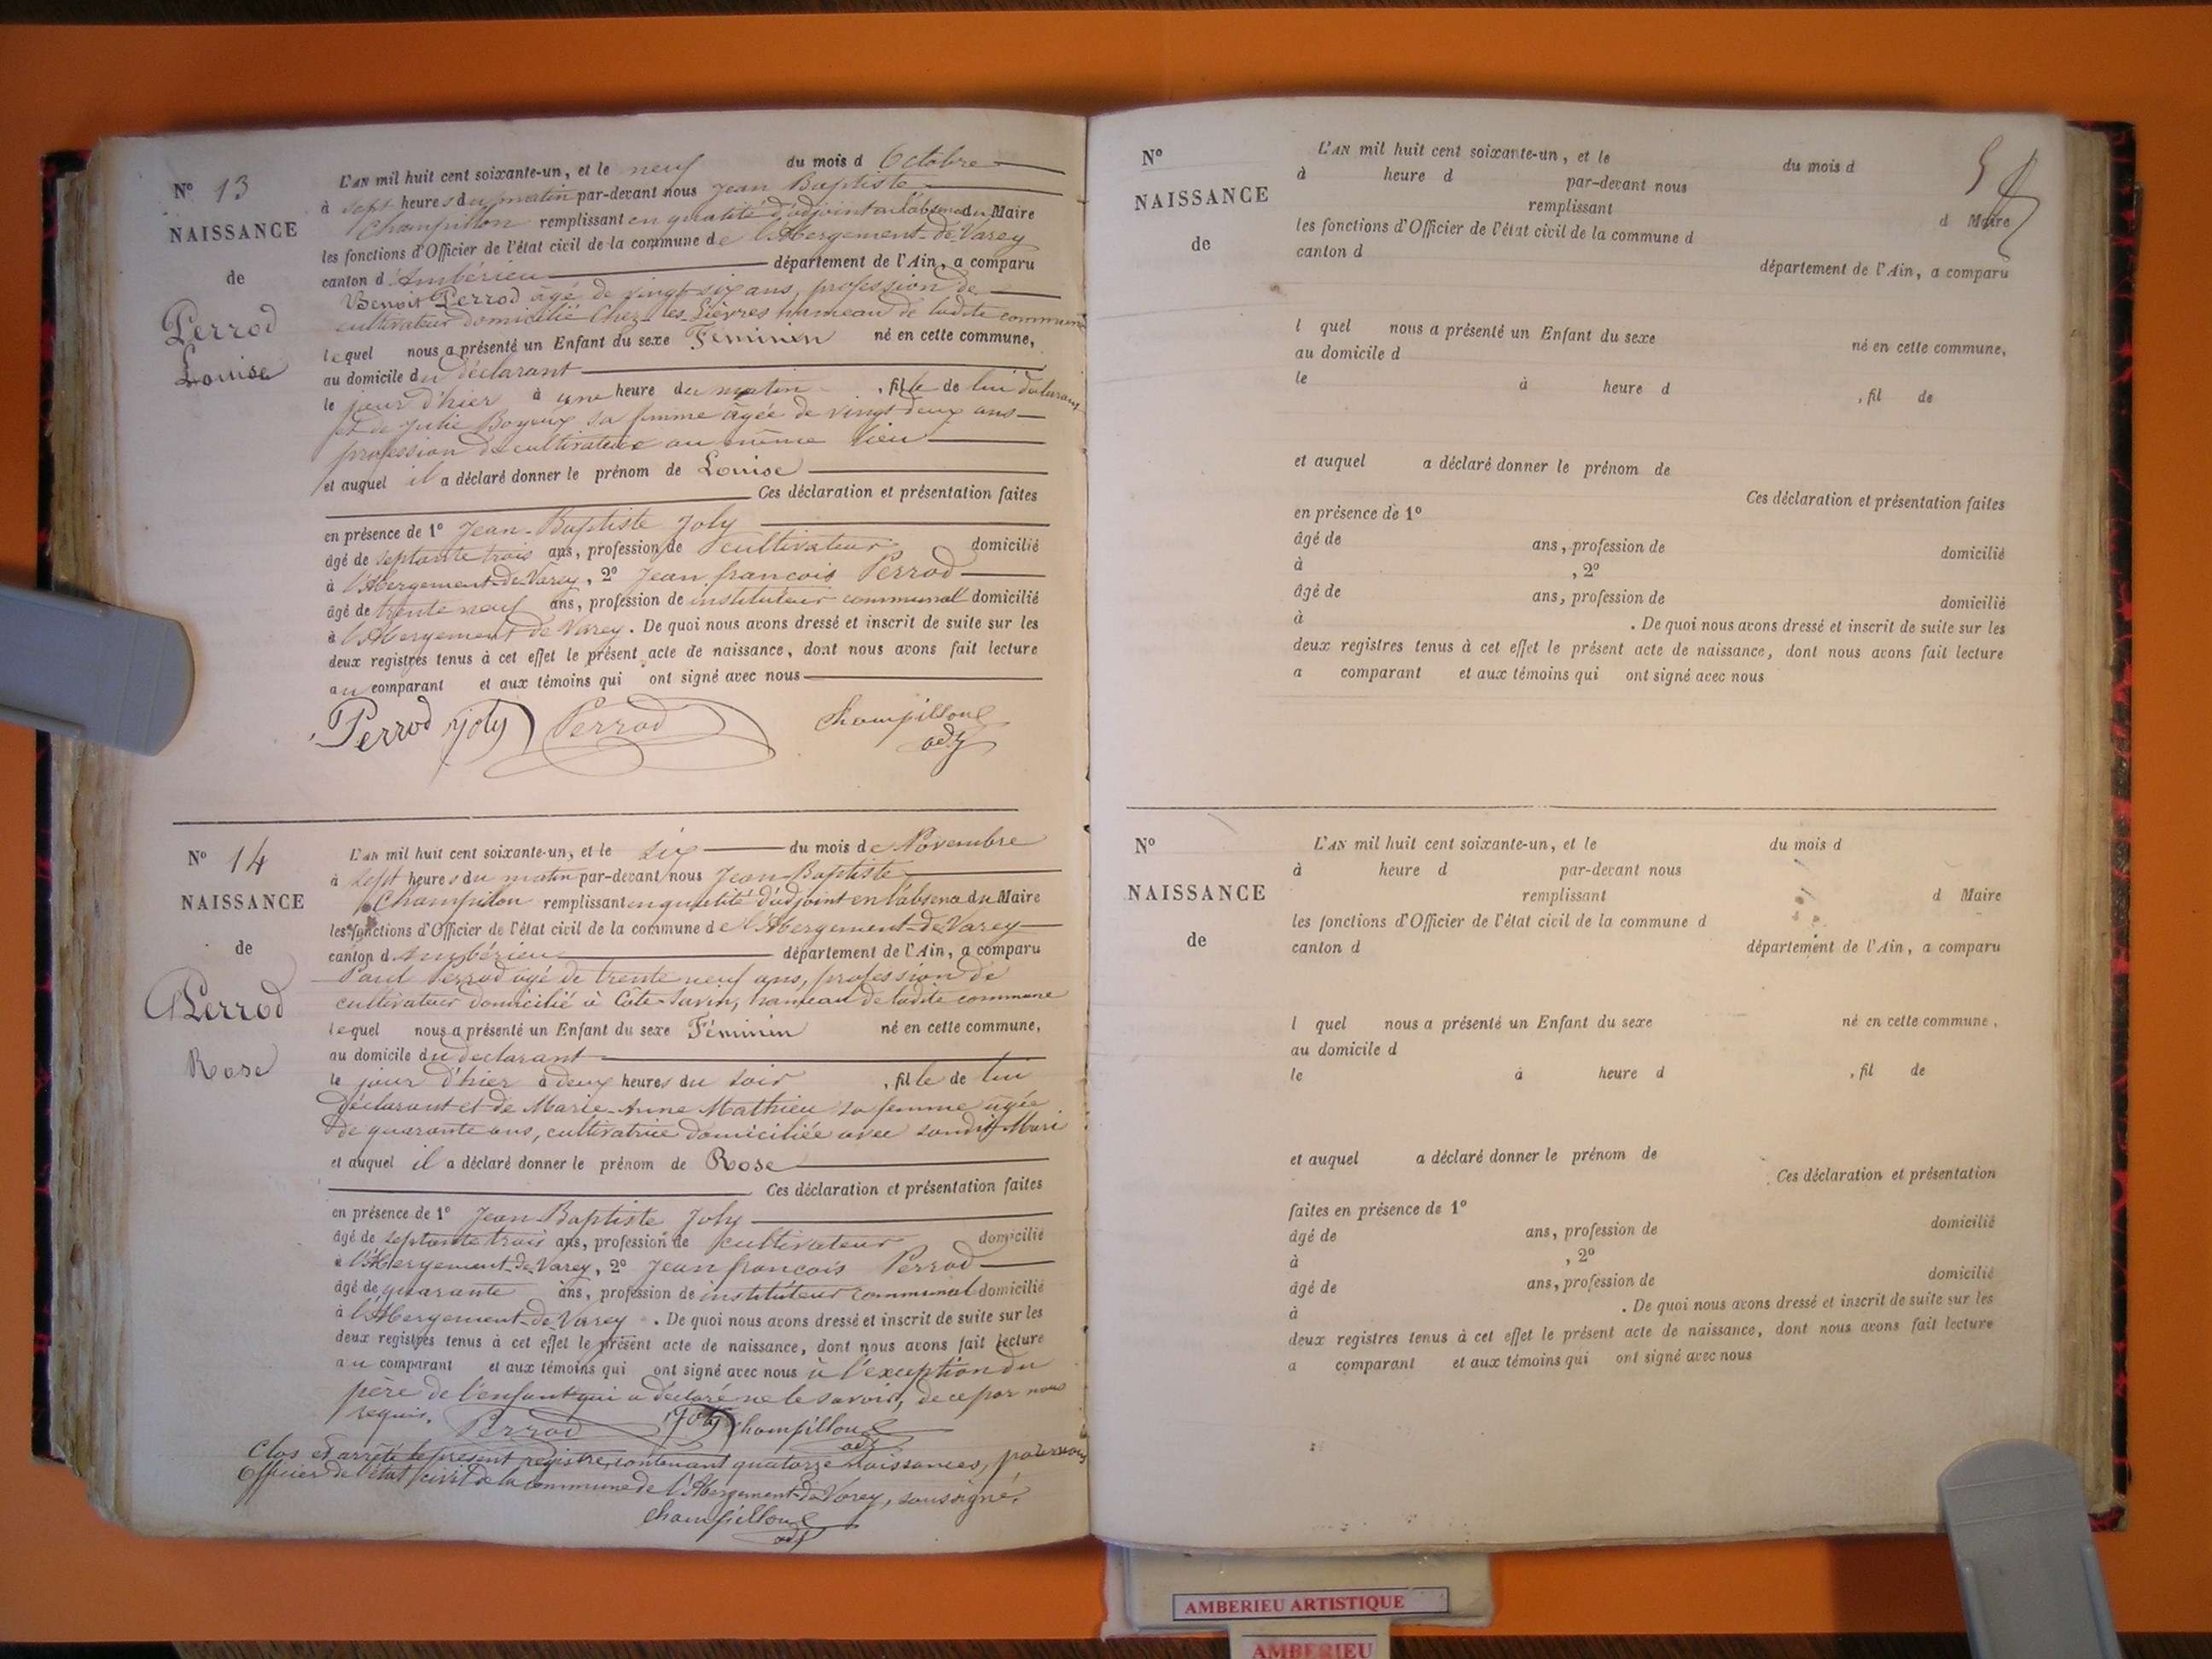 Nº 13
NAISSANCE
de
Perrod
Louise
L'AN mil huit cent soixante-un, et le neuf du mois d Octobre
à sept heures du matin par-devant nous Jean Baptiste
Champillon remplissant en qualité d'adjoint en l'absence du Maire
les fonctions d'Officier de l'état civil de la commune de l'Abergement-de-Varey
canton d'Ambérieu département de l'Ain, a comparu
Benoit Perrod âgé de vingt-six ans, profession de
cultivateur domicilié Chez-les-Lièvres hameau de ladite commune
lequel nous a présenté un Enfant du sexe Féminin né en cette commune,
au domicile du déclarant
le jour d'hier à une heure du matin, fille de lui déclarant
et de Julie Boyeux sa femme âgée de vingt deux ans
profession de cultivateur au même lieu
et auquel il a déclaré donner le prénom de Louise
Ces déclaration et présentation faites
en présence de 1º Jean-Baptiste Joly
âgé de septante trois ans, profession de cultivateur domicilié
à l'Abergement-de-Varey, 2º Jean françois Perrod
âgé de trente neuf ans, profession de instituteur communal domicilié
à l'Abergement de Varey. De quoi nous avons dressé et inscrit de suite sur les
deux registres tenus à cet effet le présent acte de naissance, dont nous avons fait lecture
au comparant et aux témoins qui ont signé avec nous
Perrod Joly Perrod Champillon
adj
Nº 14
NAISSANCE
de
Perrod
Rose
L'AN mil huit cent soixante-un, et le six du mois de Novembre
à sept heures du matin par-devant nous Jean-Baptiste
Champillon remplissant en qualité d'adjoint en l'absence du Maire
les fonctions d'Officier de l'état civil de la commune de l'Abergement-de-Varey
canton d'Ambérieu département de l'Ain, a comparu
Paul Perrod âgé de trente neuf ans, profession de
cultivateur domicilié à Côte-Savin, hameau de ladite commune
lequel nous a présenté un Enfant du sexe Féminin né en cette commune,
au domicile du déclarant
le jour d'hier à deux heures du soir, fille de lui
déclarant et de Marie-Anne Mathieu sa femme âgée
de quarante ans, cultivatrice domiciliée avec sondit Mari
et auquel il a déclaré donner le prénom de Rose
Ces déclaration et présentation faites
en présence de 1º Jean-Baptiste Joly
âgé de septante trois ans, profession de cultivateur domicilié
à l'Abergement-de-Varey, 2º Jean françois Perrod
âgé de quarante ans, profession de instituteur communal domicilié
à l'Abergement-de-Varey. De quoi nous avons dressé et inscrit de suite sur les
deux registres tenus à cet effet le présent acte de naissance, dont nous avons fait lecture
au comparant et aux témoins qui ont signé avec nous à l'exception du
père de l'enfant qui a déclaré ne le savoir, de ce par nous
requis.
Perrod Joly Champillon
adj
Clos et arrêté le présent registre, contenant quatorze naissances, par nous
Officier de l'état civil de la commune de l'Abergement-de-Varey, soussigné.
Champillon
adj
Nº
NAISSANCE
de
L'AN mil huit cent soixante-un, et le du mois d
à heure d par-devant nous
remplissant d Maire
les fonctions d'Officier de l'état civil de la commune d
canton d département de l'Ain, a comparu
l quel nous a présenté un Enfant du sexe né en cette commune,
au domicile d
le à heure d , fil de
et auquel a déclaré donner le prénom de
Ces déclaration et présentation faites
en présence de 1º
âgé de ans, profession de domicilié
à , 2º
âgé de ans, profession de domicilié
à . De quoi nous avons dressé et inscrit de suite sur les
deux registres tenus à cet effet le présent acte de naissance, dont nous avons fait lecture
a comparant et aux témoins qui ont signé avec nous
Nº
NAISSANCE
de
L'AN mil huit cent soixante-un, et le du mois d
à heure d par-devant nous
remplissant d Maire
les fonctions d'Officier de l'état civil de la commune d
canton d département de l'Ain, a comparu
l quel nous a présenté un Enfant du sexe né en cette commune,
au domicile d
le à heure d , fil de
et auquel a déclaré donner le prénom de
Ces déclaration et présentation
faites en présence de 1º
âgé de ans, profession de domicilié
à , 2º
âgé de ans, profession de domicilié
à . De quoi nous avons dressé et inscrit de suite sur les
deux registres tenus à cet effet le présent acte de naissance, dont nous avons fait lecture
a comparant et aux témoins qui ont signé avec nous
AMBERIEU ARTISTIQUE
AMBERIEU